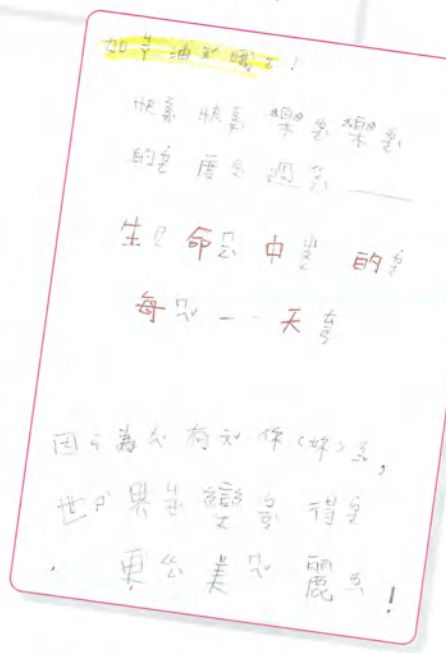 加油喔!
快快樂樂
的度過—
生命中的
每一天
因為有你(妳),
世界變得
更美麗!